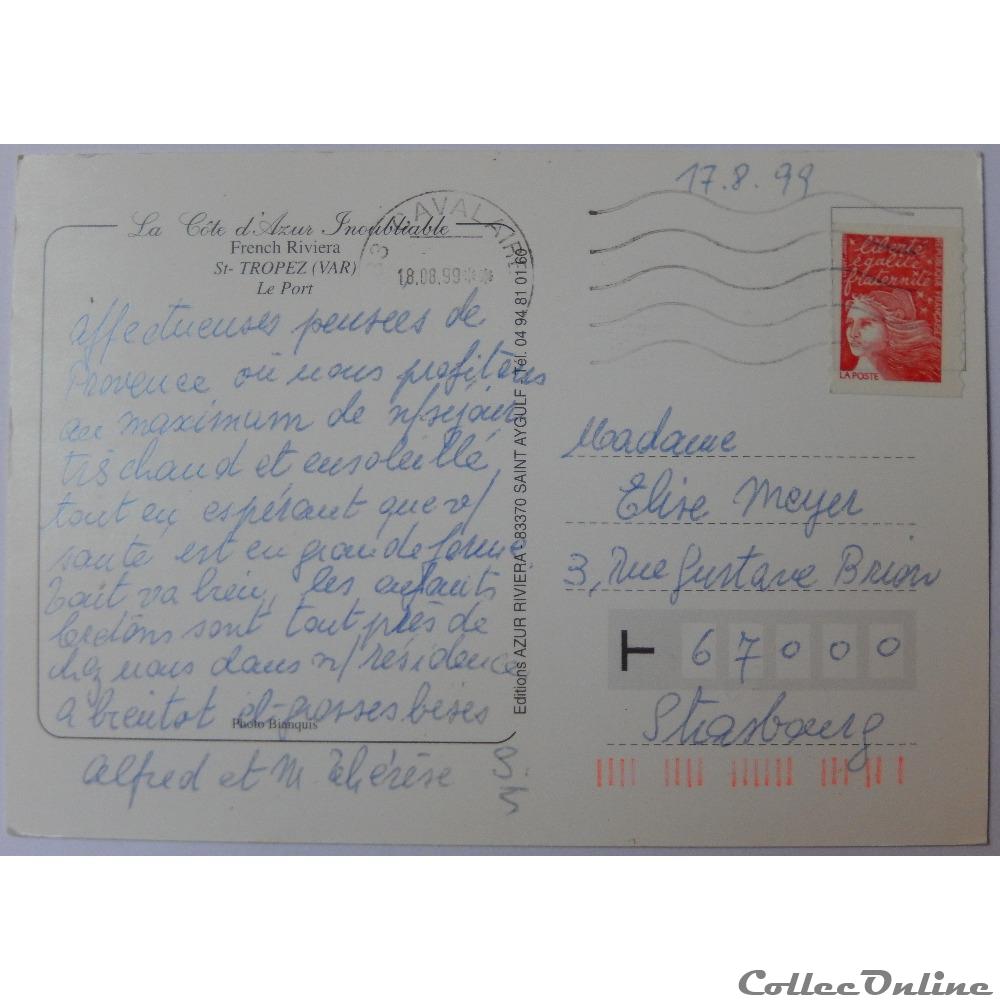 17.8.99
La Côte d'Azur Inoubliable
French Riviera
St- TROPEZ (VAR)
Le Port
83 CAVALAIRE
18.08.99
liberté
égalité
fraternité
LA POSTE
Affectueuses pensées de
Provence où nous profitons
au maximum de n/séjour
très chaud et ensoleillé,
tout en espérant que v/
santé est en grande forme
Tout va bien, les enfants
sont tout près de
chez nous dans n/ résidence
A bientôt et grosses bises
Alfred et M. Thérèse
Photo Bianquis
Editions AZUR RIVIERA - 83370 SAINT AYGULF - Tél. 04 94 81 01 60
Madame
Elise Meyer
3, Rue Gustave Brion
T 67000
Strasbourg
CollecOnline